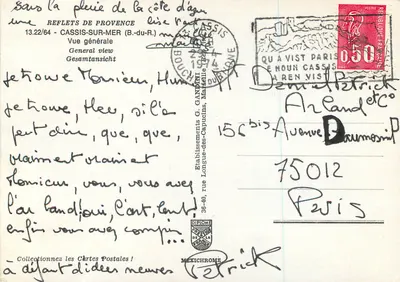 sous la pluie de la côte d'azur
une
REFLETS DE PROVENCE
13.22/64 - CASSIS-SUR-MER (B.-du-R.)
Vue générale
General view
Gesamtansicht
je trouve Monsieur, Hum
je trouve, Heu, si l'on
peut dire, que, que,
vraiment vraiment
Monsieur, vous, vous avez
enfin vous avez compris...
Collectionnez les Cartes Postales !
à défaut d'idées neuves
Patrick
Etablissements G. GANDINI
36-40, rue Longue-des-Capucins, Marseille
MEXICHROME
CASSIS
BOUCHES DU RHONE
QU A VIST PARIS
E NOUN CASSIS
A REN VIST
0,50
Daniel Patrick
Arland et Co
156 bis Avenue Daumesnil
75012
Paris